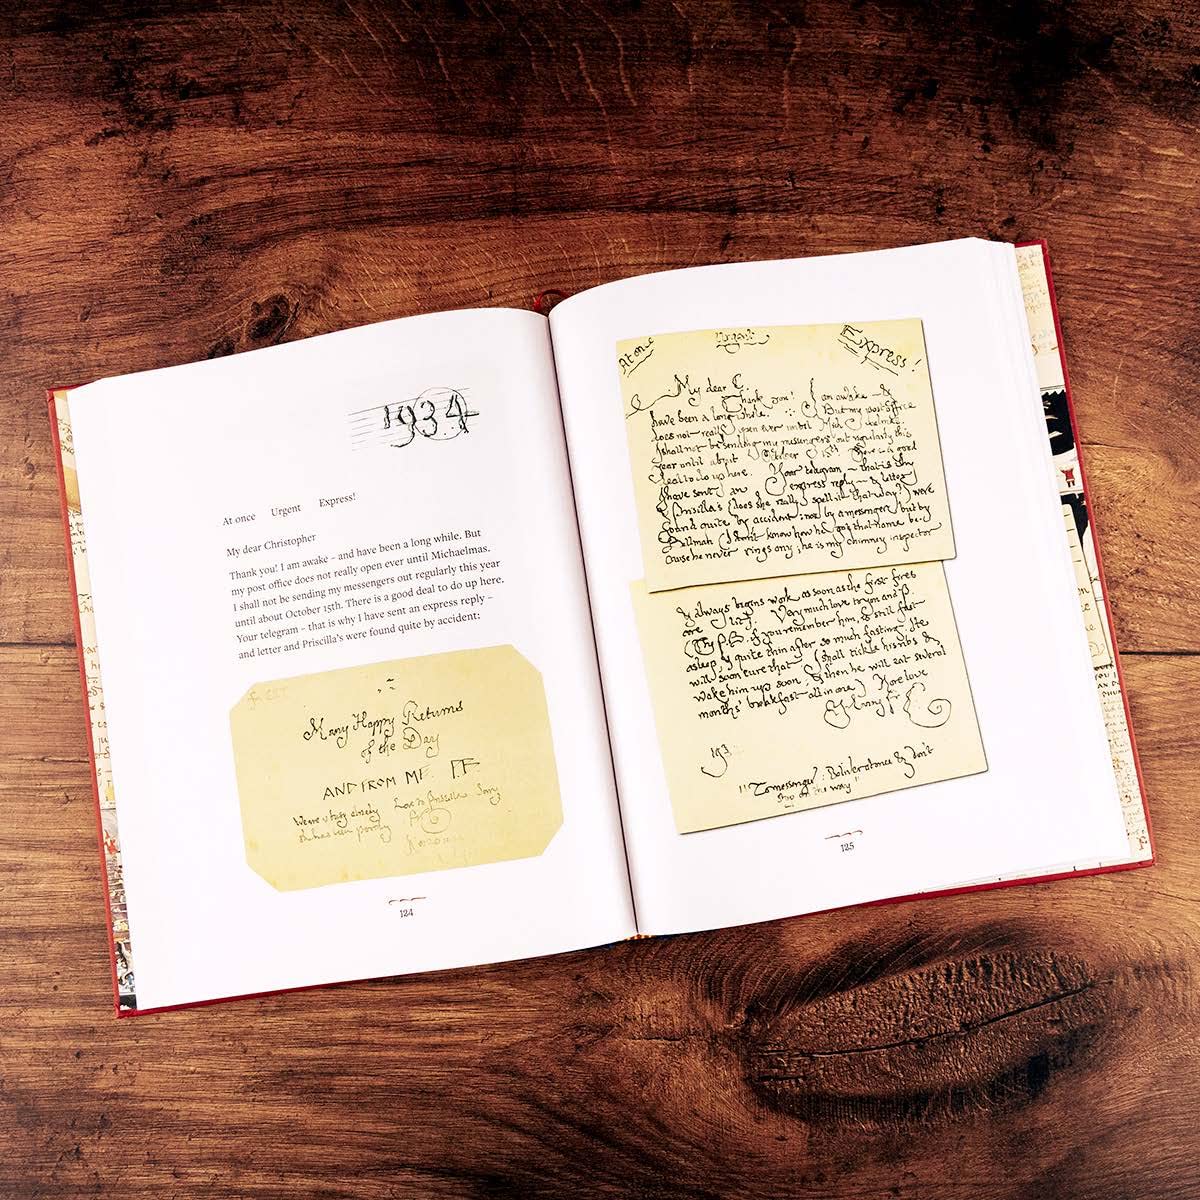 1934
At once Urgent Express!
My dear Christopher
Thank you! I am awake – and have been a long while. But
my post office does not really open ever until Michaelmas.
I shall not be sending my messengers out regularly this year
until about October 15th. There is a good deal to do up here.
Your telegram – that is why I have sent an express reply –
and letter and Priscilla's were found quite by accident:
Many Happy Returns
of the Day
AND FROM ME
Love to Priscilla
124
At once Urgent Express!
My dear C.
Thank you! I am awake – &
have been a long while. But my post office
does not really open ever until Michaelmas.
I shall not be sending my messengers out regularly this
year until about October 15th. There is a good
deal to do up here. Your telegram – that is why
I have sent an express reply – & letter
& Priscilla's (does she really spell it that way?) were
found quite by accident: not by a messenger but by
Bellman (I don't know how he got that name be-
cause he never rings any; he is my chimney inspector
& always begins work as soon as the first fires
are lit). Very much love to you and P.
(The P.B. if you remember him, is still fast
asleep, & quite thin after so much fasting. He
will soon cure that. I shall tickle his ribs &
wake him up soon; & then he will eat several
months' breakfast all in one.) More love
Yr loving F C
193
"To messenger: Deliver at once & don't
stop on the way"
125